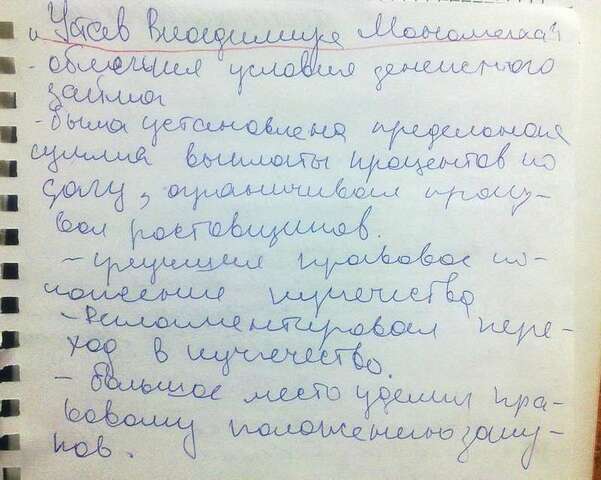 "Устав Владимира Мономаха"
- облегчил условия денежного
займа
- была установлена предельная
сумма выплаты процентов по
долгу, ограничивал произ-
вол ростовщиков.
- улучшил правовое по-
ложение купечества
- Регламентировал пере-
ход в купечество.
- большое место уделил пра-
вовому положению заку-
пов.